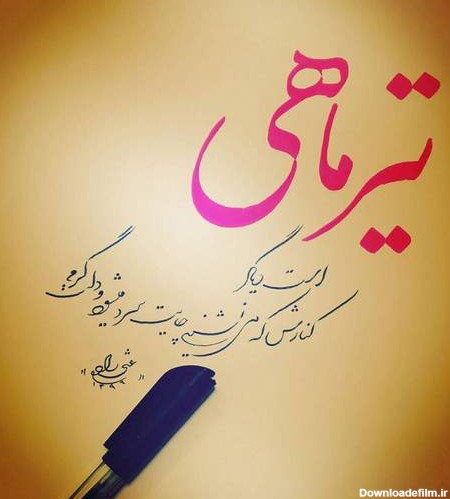 تیر ماهی
است دیگر
کنارش که می نشینی چایت سرد میشود و دلت گرم
Downloadefilm.ir